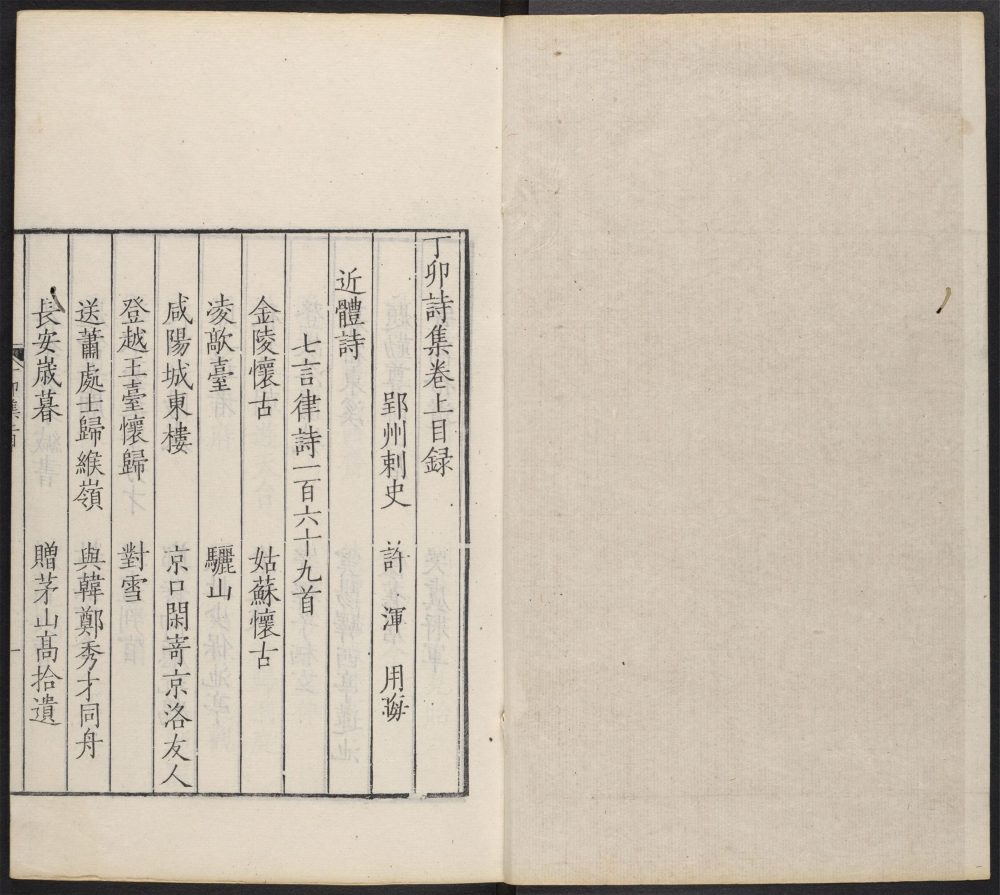 丁卯詩集卷上目録
郢州刺史 許渾 用晦
近體詩
七言律詩一百六十九首
金陵懷古 姑蘇懷古
凌歊臺 驪山
咸陽城東樓 京口閑寄京洛友人
登越王臺懷歸 對雪
送蕭處士歸緱嶺 與韓鄭秀才同舟
長安歳暮 贈茅山髙拾遺